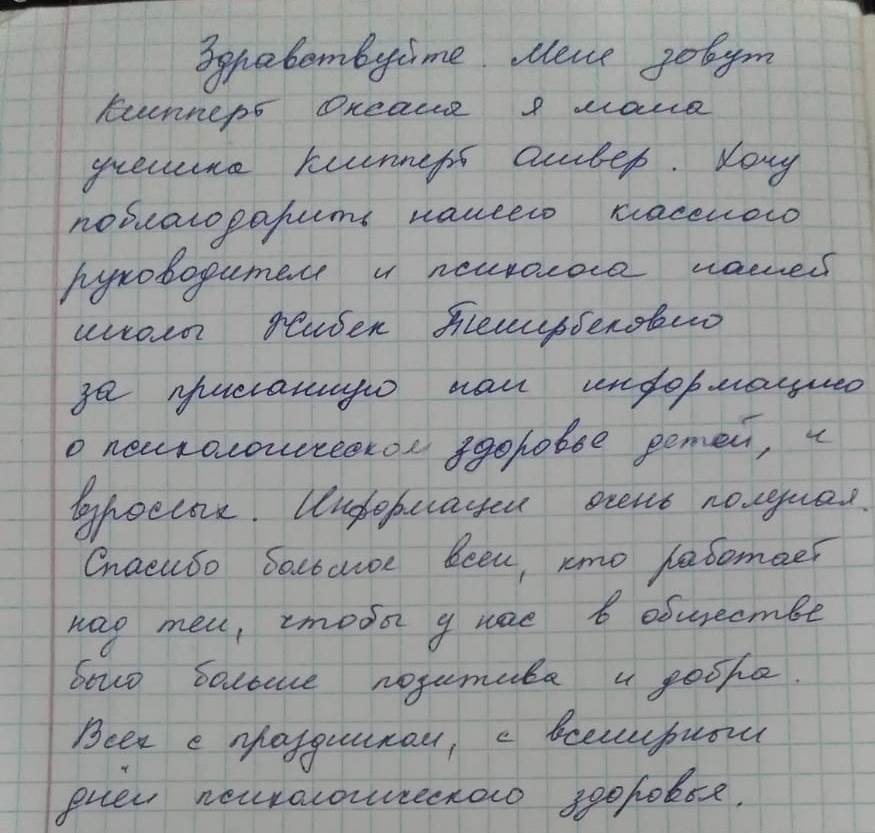 Здравствуйте. Меня зовут
Клипперт Оксана я мама
ученика Клипперт Оливер. Хочу
поблагодарить нашего классного
руководителя и психолога нашей
школы Жибек Темирбековно
за присланную нам информацию
о психологическом здоровье детей, и
взрослых. Информация очень полезная.
Спасибо большое всем, кто работает
над тем, чтобы у нас в обществе
было больше позитива и добра.
Всех с праздником, с всемирным
днём психологического здоровья.